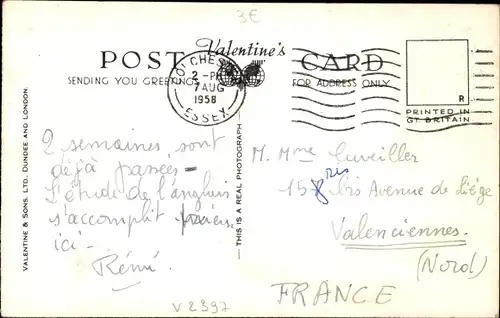 3€
POST Valentine's CARD
SENDING YOU GREETINGS FOR ADDRESS ONLY
COLCHESTER
2 - PM
7 AUG
1958
ESSEX
R
PRINTED IN
GT. BRITAIN
VALENTINE & SONS, LTD. DUNDEE AND LONDON.
— THIS IS A REAL PHOTOGRAPH —
2 semaines, sont
déjà passées -
L'étude de l'anglais
s'accomplit
ici -
Rémi.
M. Mme Cuveiller
15 bis Avenue de Liège
Valenciennes.
(Nord)
FRANCE
V2397